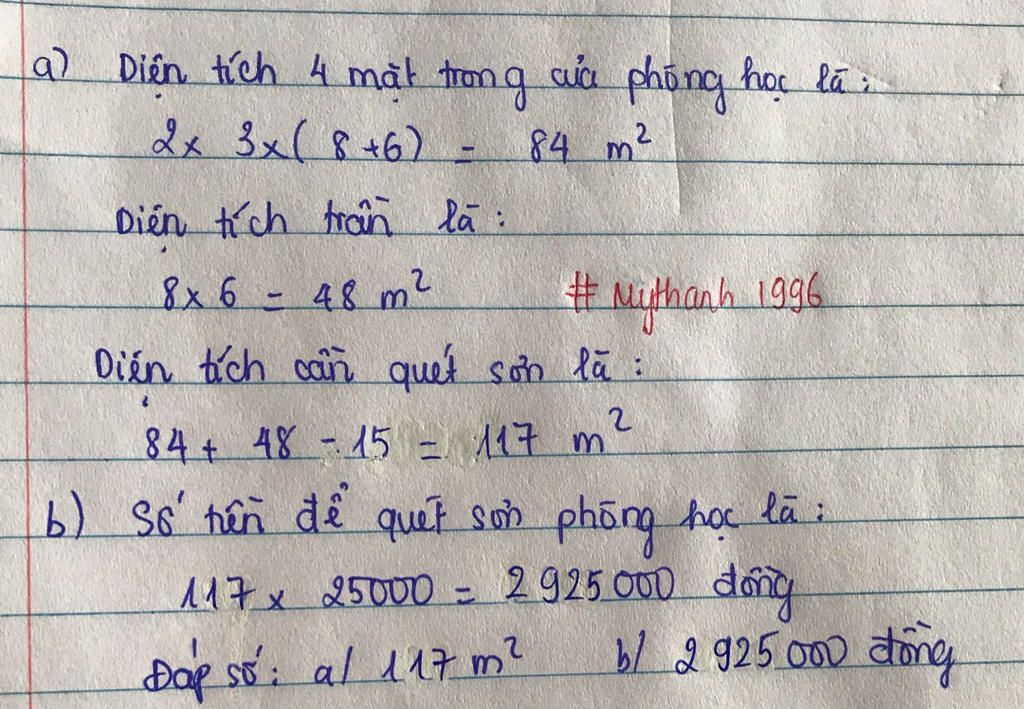 a) Diện tích 4 mặt trong của phòng học là:
2 x 3 x ( 8 + 6 ) = 84 m²
Diện tích trần là:
8 x 6 = 48 m² # Mythanh 1996
Diện tích cần quét sơn là:
84 + 48 - 15 = 117 m²
b) Số tiền để quét sơn phòng học là:
117 x 25000 = 2 925 000 đồng
Đáp số: a/ 117 m² b/ 2 925 000 đồng